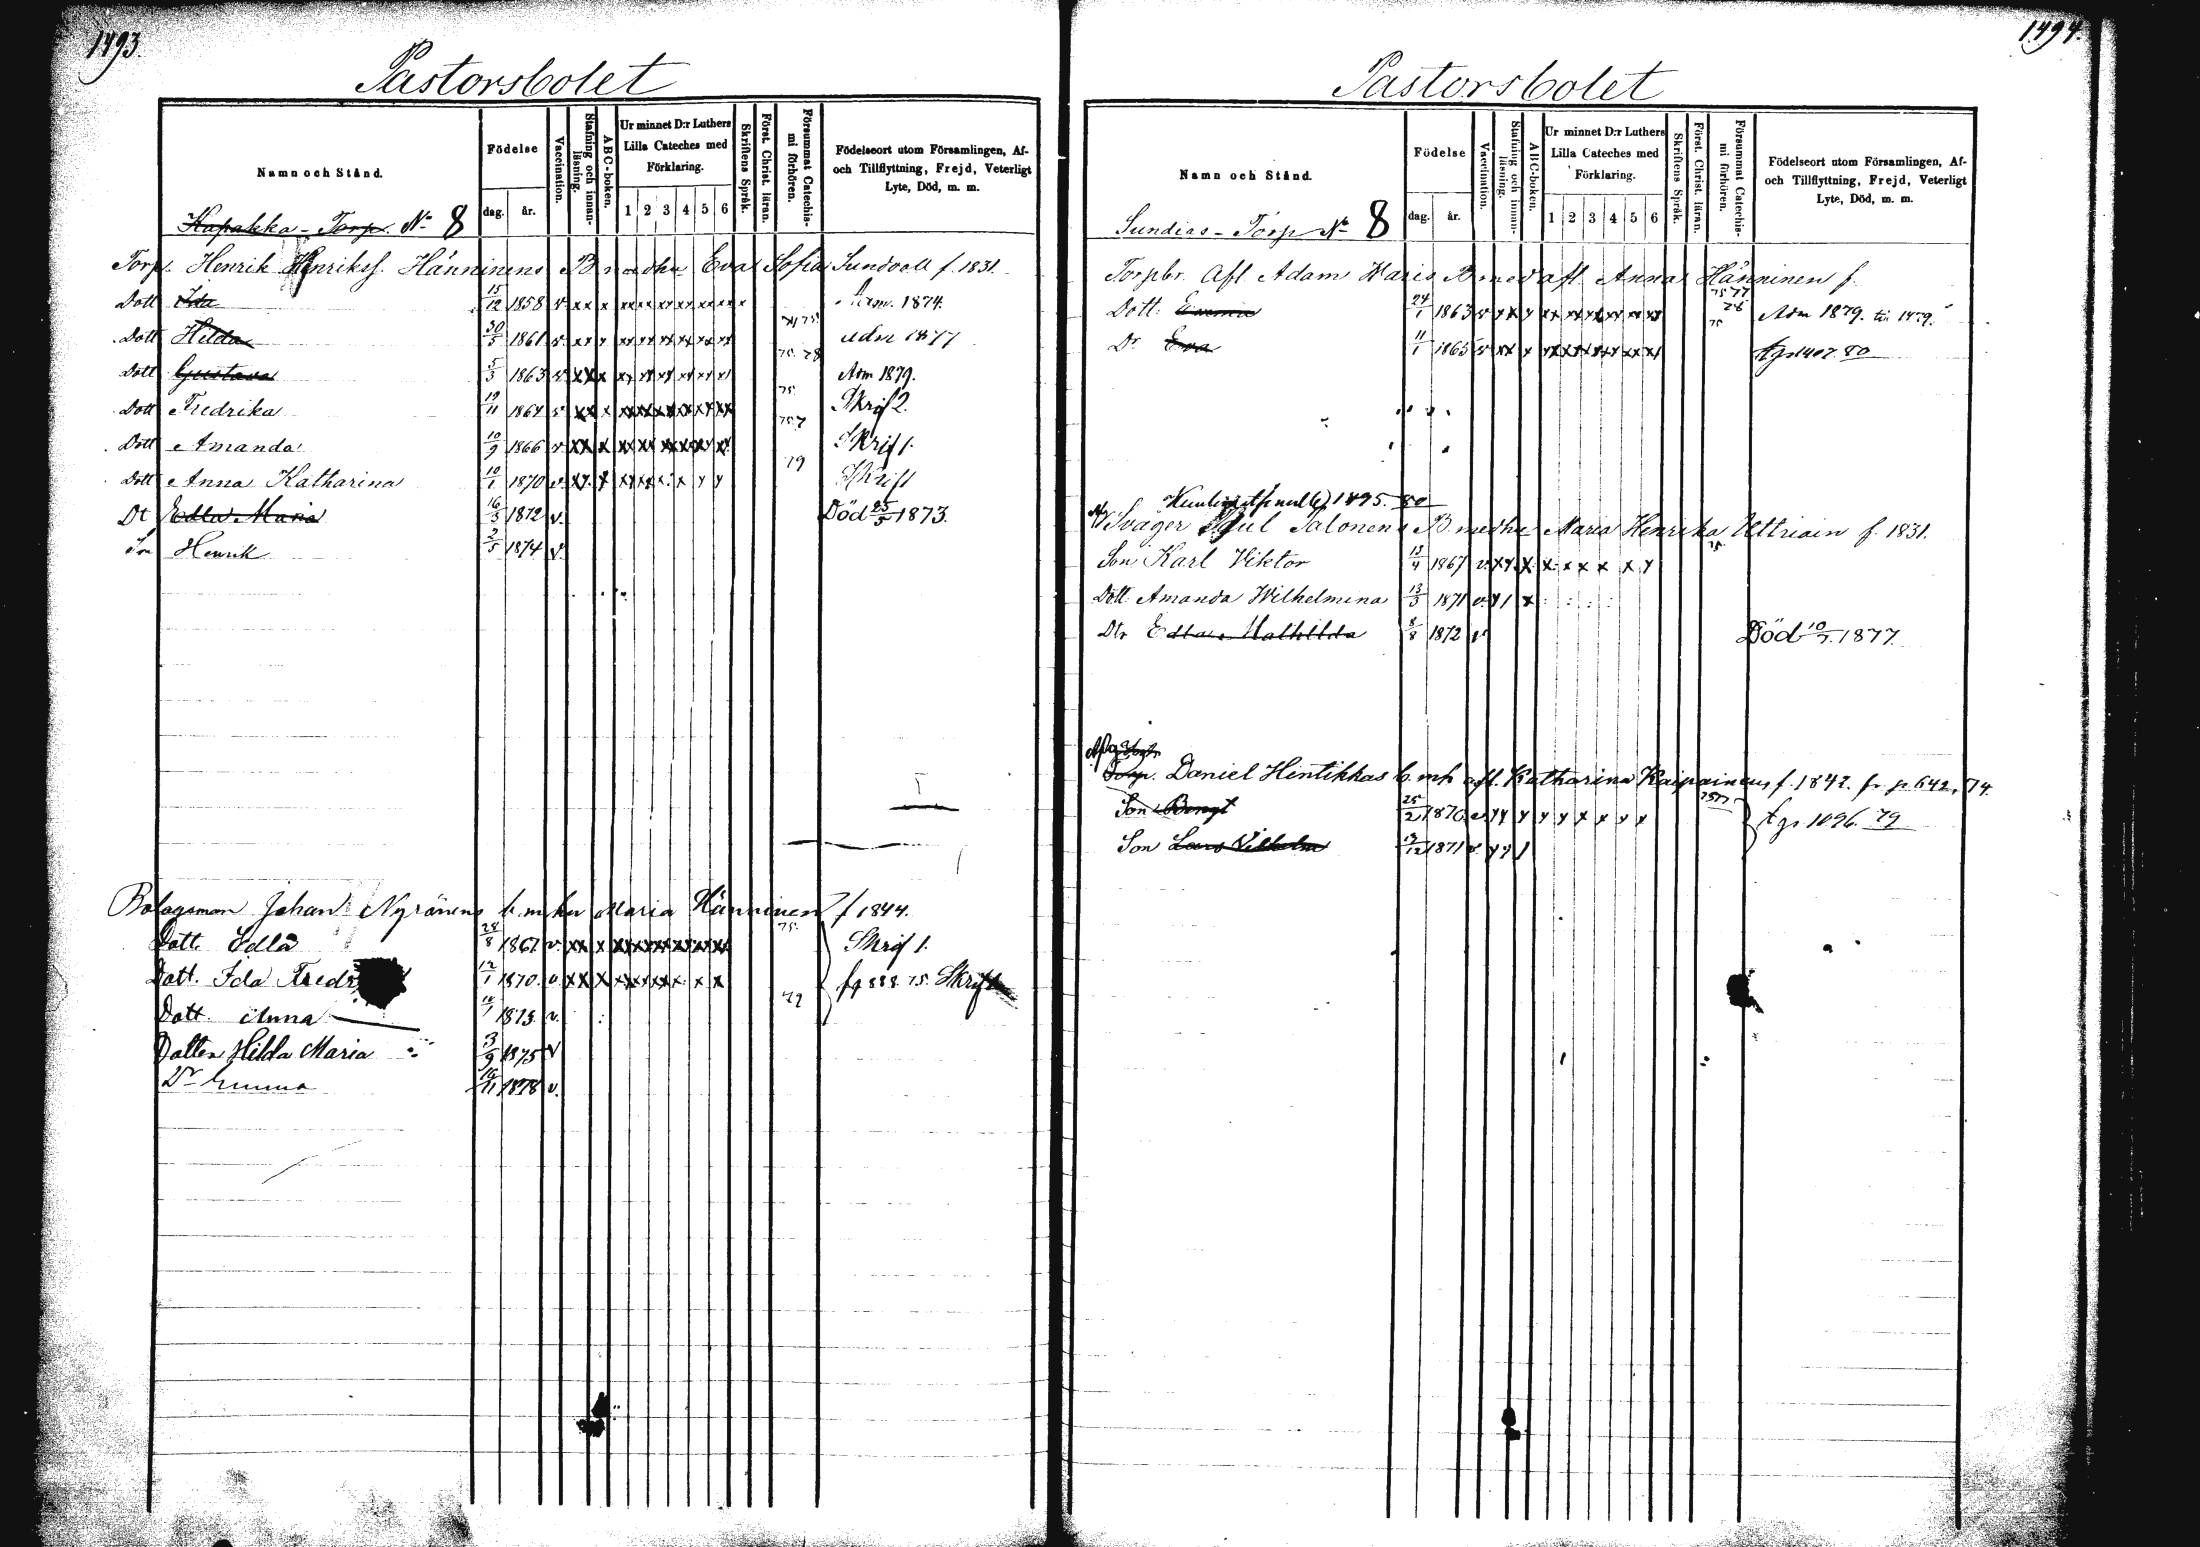 1493.
Pastorsbolet
Namn och Stånd.
Födelse
dag. år.
Vaccination.
Stafning och innanläsning.
ABC-boken.
Ur minnet D:r Luthers Lilla Cateches med Förklaring.
1 2 3 4 5 6
Skriftens Språk.
Först. Christ. läran.
Försummat Catechismi förhören.
Födelseort utom Församlingen, Af- och Tillflyttning, Frejd, Veterligt Lyte, Död, m. m.
Kapakka - Torp. No 8
Torp. Henrik Henrikss. Hänninens B medhu Eva Sofia Sundvall f. 1831.
Dott Ida 15/12 1858 v xx x xx xx xx xx xx xx x Adm. 1874.
Dott Hilda 30/5 1861 v. xx x xx xx xx xx xx xx adm 1877
Dott Gustava 5/3 1863 v. xx x xx xx xx xx xx xx 75. 78 Adm 1879.
Dott Fredrika 19/11 1864 v xx x xx xx xx xx xx xx 75. Skrif 2.
Dott Amanda 10/9 1866 v. xx x xx xx xx xx xx xx 75 7 Skrif 1.
Dott Anna Katharina 10/1 1870 v. xx. x xx xx x x x x 79 Skrift
Dt Edla Maria 16/3 1872 v. Död 25/5 1873.
Son Henrik 2/5 1874 v.
Bolagsman Johan Nyrönens b. m hu Maria Hänninen f 1844.
Dott. Edla 28/8 1867. v. xx x xx xx xx xx xx xx 75. Skrif 1.
Dott. Ida Fredr 12/1 1870. v. xx x xx xx xx x x x fp 888. 75. Skrift
Dott. Anna 1873. v. 79
Dotten Hilda Maria 3/9 1875 v
Dr Emma 11 1878 v.
1494.
Pastorsbolet
Namn och Stånd.
Födelse
dag. år.
Vaccination.
Stafning och innanläsning.
ABC-boken.
Ur minnet D:r Luthers Lilla Cateches med Förklaring.
1 2 3 4 5 6
Skriftens Språk.
Först. Christ. läran.
Försummat Catechismi förhören.
Födelseort utom Församlingen, Af- och Tillflyttning, Frejd, Veterligt Lyte, Död, m. m.
Sundias - Torp No 8
Torpbr. Afl Adam Haris B med afl. Anna Hänninen f.
Dott. 24/1 1863 v xx x xx xx xx xx xx xx 75 77 78 Adm 1879. 1479.
Dr Eva 11/1 1865 v xx x xx xx xx xx xx xx 75 tgp 1407 80
1495. 80
Svåger Paul Salonens B. medhu Maria Henrika Uttriain f. 1831.
Son Karl Viktor 13/4 1867 v. xx. x. x x x x x x 75
Dott. Amanda Wilhelmina 13/3 1871 v. x 1 x
Dtr Edla Mathilda 8/8 1872 v Död 10/7. 1877.
Torp. Daniel Hentikkas b. mh afl. Katharina Kaipainens f. 1842. fr. p 642, 74.
Son Bengt 25/2 1870. v. xx x x x x x x x tgp 1096. 79
Son Lars Vilhelm 12 1871 v. xx 1